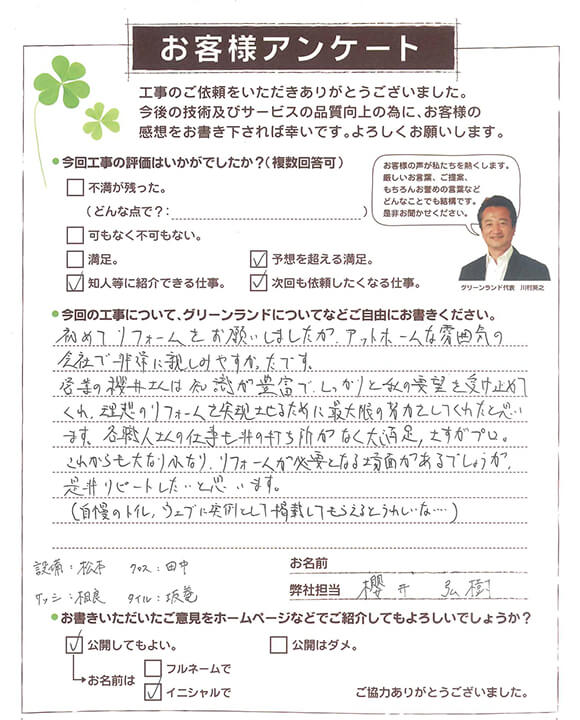 お客様アンケート
工事のご依頼をいただきありがとうございました。
今後の技術及びサービスの品質向上の為に、お客様の
感想をお書き下されば幸いです。よろしくお願いします。
●今回工事の評価はいかがでしたか?(複数回答可)
不満が残った。
(どんな点で?:)
可もなく不可もない。
満足。
予想を超える満足。
知人等に紹介できる仕事。
次回も依頼したくなる仕事。
お客様の声が私たちを熱くします。
厳しいお言葉、ご提案、
もちろんお誉めの言葉など
どんなことでも結構です。
是非お聞かせください。
グリーンランド代表 川村英之
●今回の工事について、グリーンランドについてなどご自由にお書きください。
初めてリフォームをお願いしましたが、アットホームな雰囲気の
会社で非常に親しみやすかったです。
営業の櫻井さんは知識が豊富で、しっかりと私の要望を受け止めて
くれ、理想のリフォームを実現させるために最大限の努力をしてくれたと思い
ます。各職人さんの仕事も非の打ち所がなく大満足、さすがプロ。
これからも大なり小なり、リフォームが必要となる場面があるでしょうが、
是非リピートしたいと思います。
(自慢のトイレ、ウェブに実例として掲載してもらえるとうれしいな…)
設備:松本 クロス:田中
サッシ:相良 タイル:坂
お名前
弊社担当 櫻井 弘樹
●お書きいただいたご意見をホームページなどでご紹介してもよろしいでしょうか?
公開してもよい。
公開はダメ。
お名前は
フルネームで
イニシャルで
ご協力ありがとうございました。